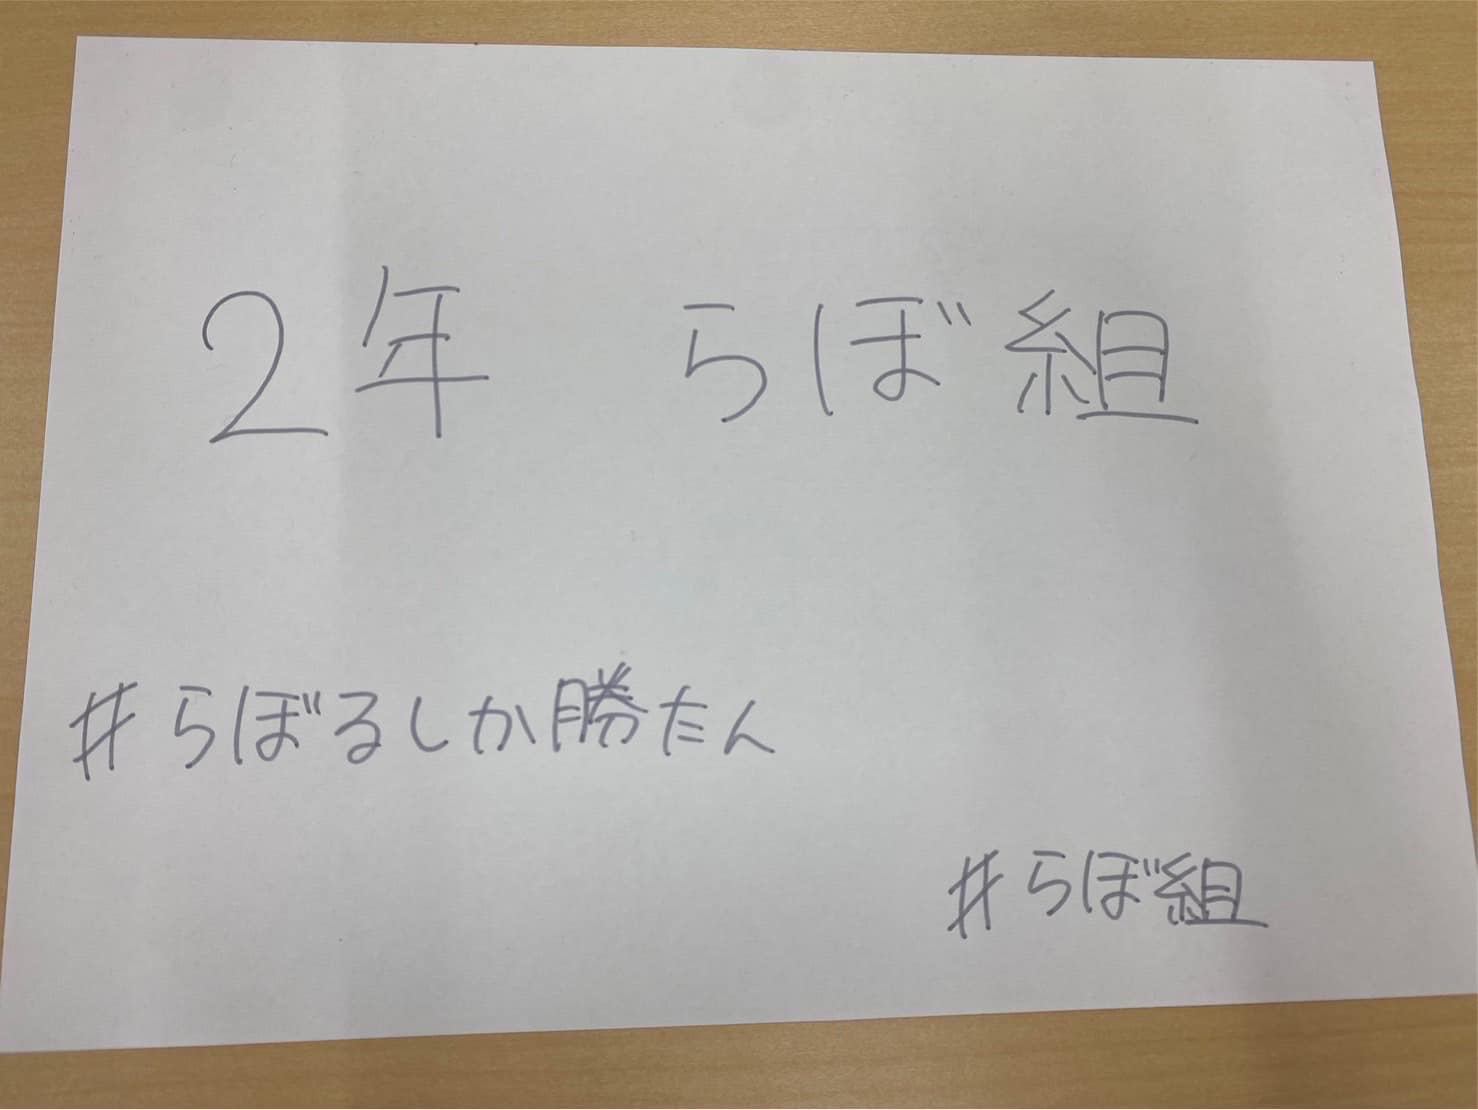 2年 らぼ組
#らぼるしか勝たん
#らぼ組